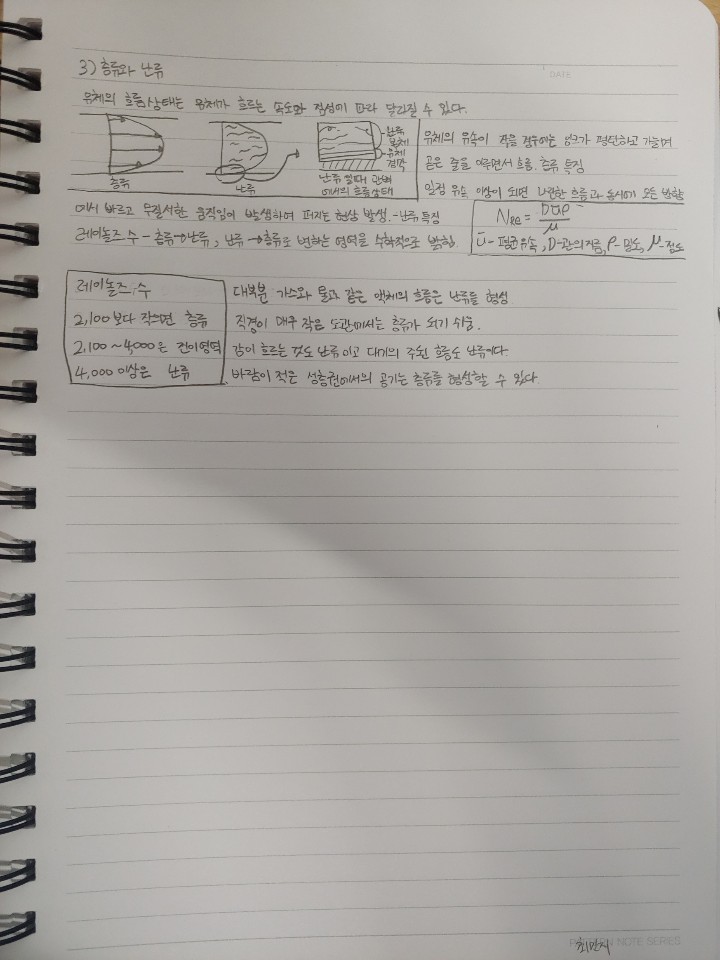 DATE
3) 층류와 난류
유체의 흐름상태는 유체가 흐르는 속도와 점성에 따라 달라질 수 있다.
층류
난류
난류
본체
유체
경막
난류일때 관벽
에서의 흐름상태
유체의 유속이 작을 경우에는 잉크가 평탄하고 가늘며
곧은 줄을 이루면서 흐름. 층류 특징
일정 유속 이상이 되면 나란한 흐름과 동시에 모든 방향
에서 빠르고 무질서한 움직임이 발생하여 퍼지는 현상 발생.-난류 특징
레이놀즈 수 - 층류→난류, 난류→층류로 변하는 영역을 수학적으로 밝힘.
NRe = Dūρ/μ
ū-평균유속, D-관의지름, ρ-밀도, μ-점도
레이놀즈 수
2,100보다 작으면 층류
2,100~4,000은 전이영역
4,000이상은 난류
대부분 가스와 물과 같은 액체의 흐름은 난류를 형성
직경이 매우 작은 도관에서는 층류가 되기 쉬움.
강이 흐르는 것도 난류이고 대기의 주된 흐름도 난류이다.
바람이 적은 성층권에서의 공기는 층류를 형성할 수 있다.
NOTE SERIES
최민지